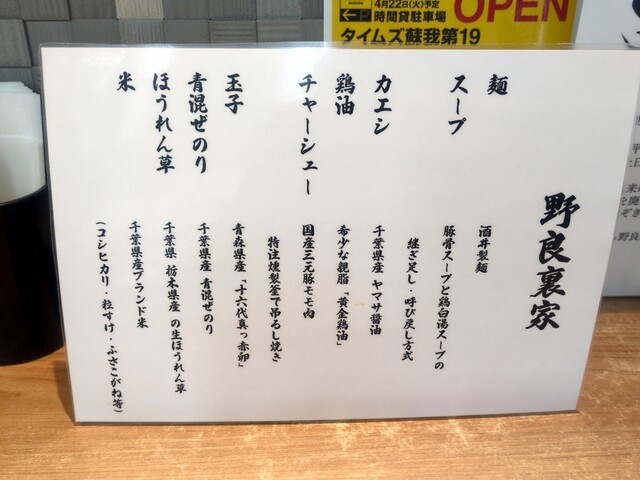 4月22日(火)予定
OPEN
P 時間貸駐車場
タイムズ蘇我第19
野良裏家
麺 酒井製麺
スープ 豚骨スープと鶏白湯スープの
継ぎ足し・呼び戻し方式
カエシ 千葉県産 ヤマサ醤油
鶏油 希少な親脂「黄金鶏油」
チャーシュー 国産三元豚モモ肉
特注燻製釜で吊るし焼き
玉子 青森県産「十六代真っ赤卵」
青混ぜのり 千葉県産 青混ぜのり
ほうれん草 千葉県 栃木県産 の生ほうれん草
米 千葉県産ブランド米
(コシヒカリ・粒すけ・ふさこがね等)